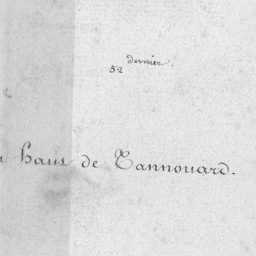 52 dernier.
haut de Tannouard.